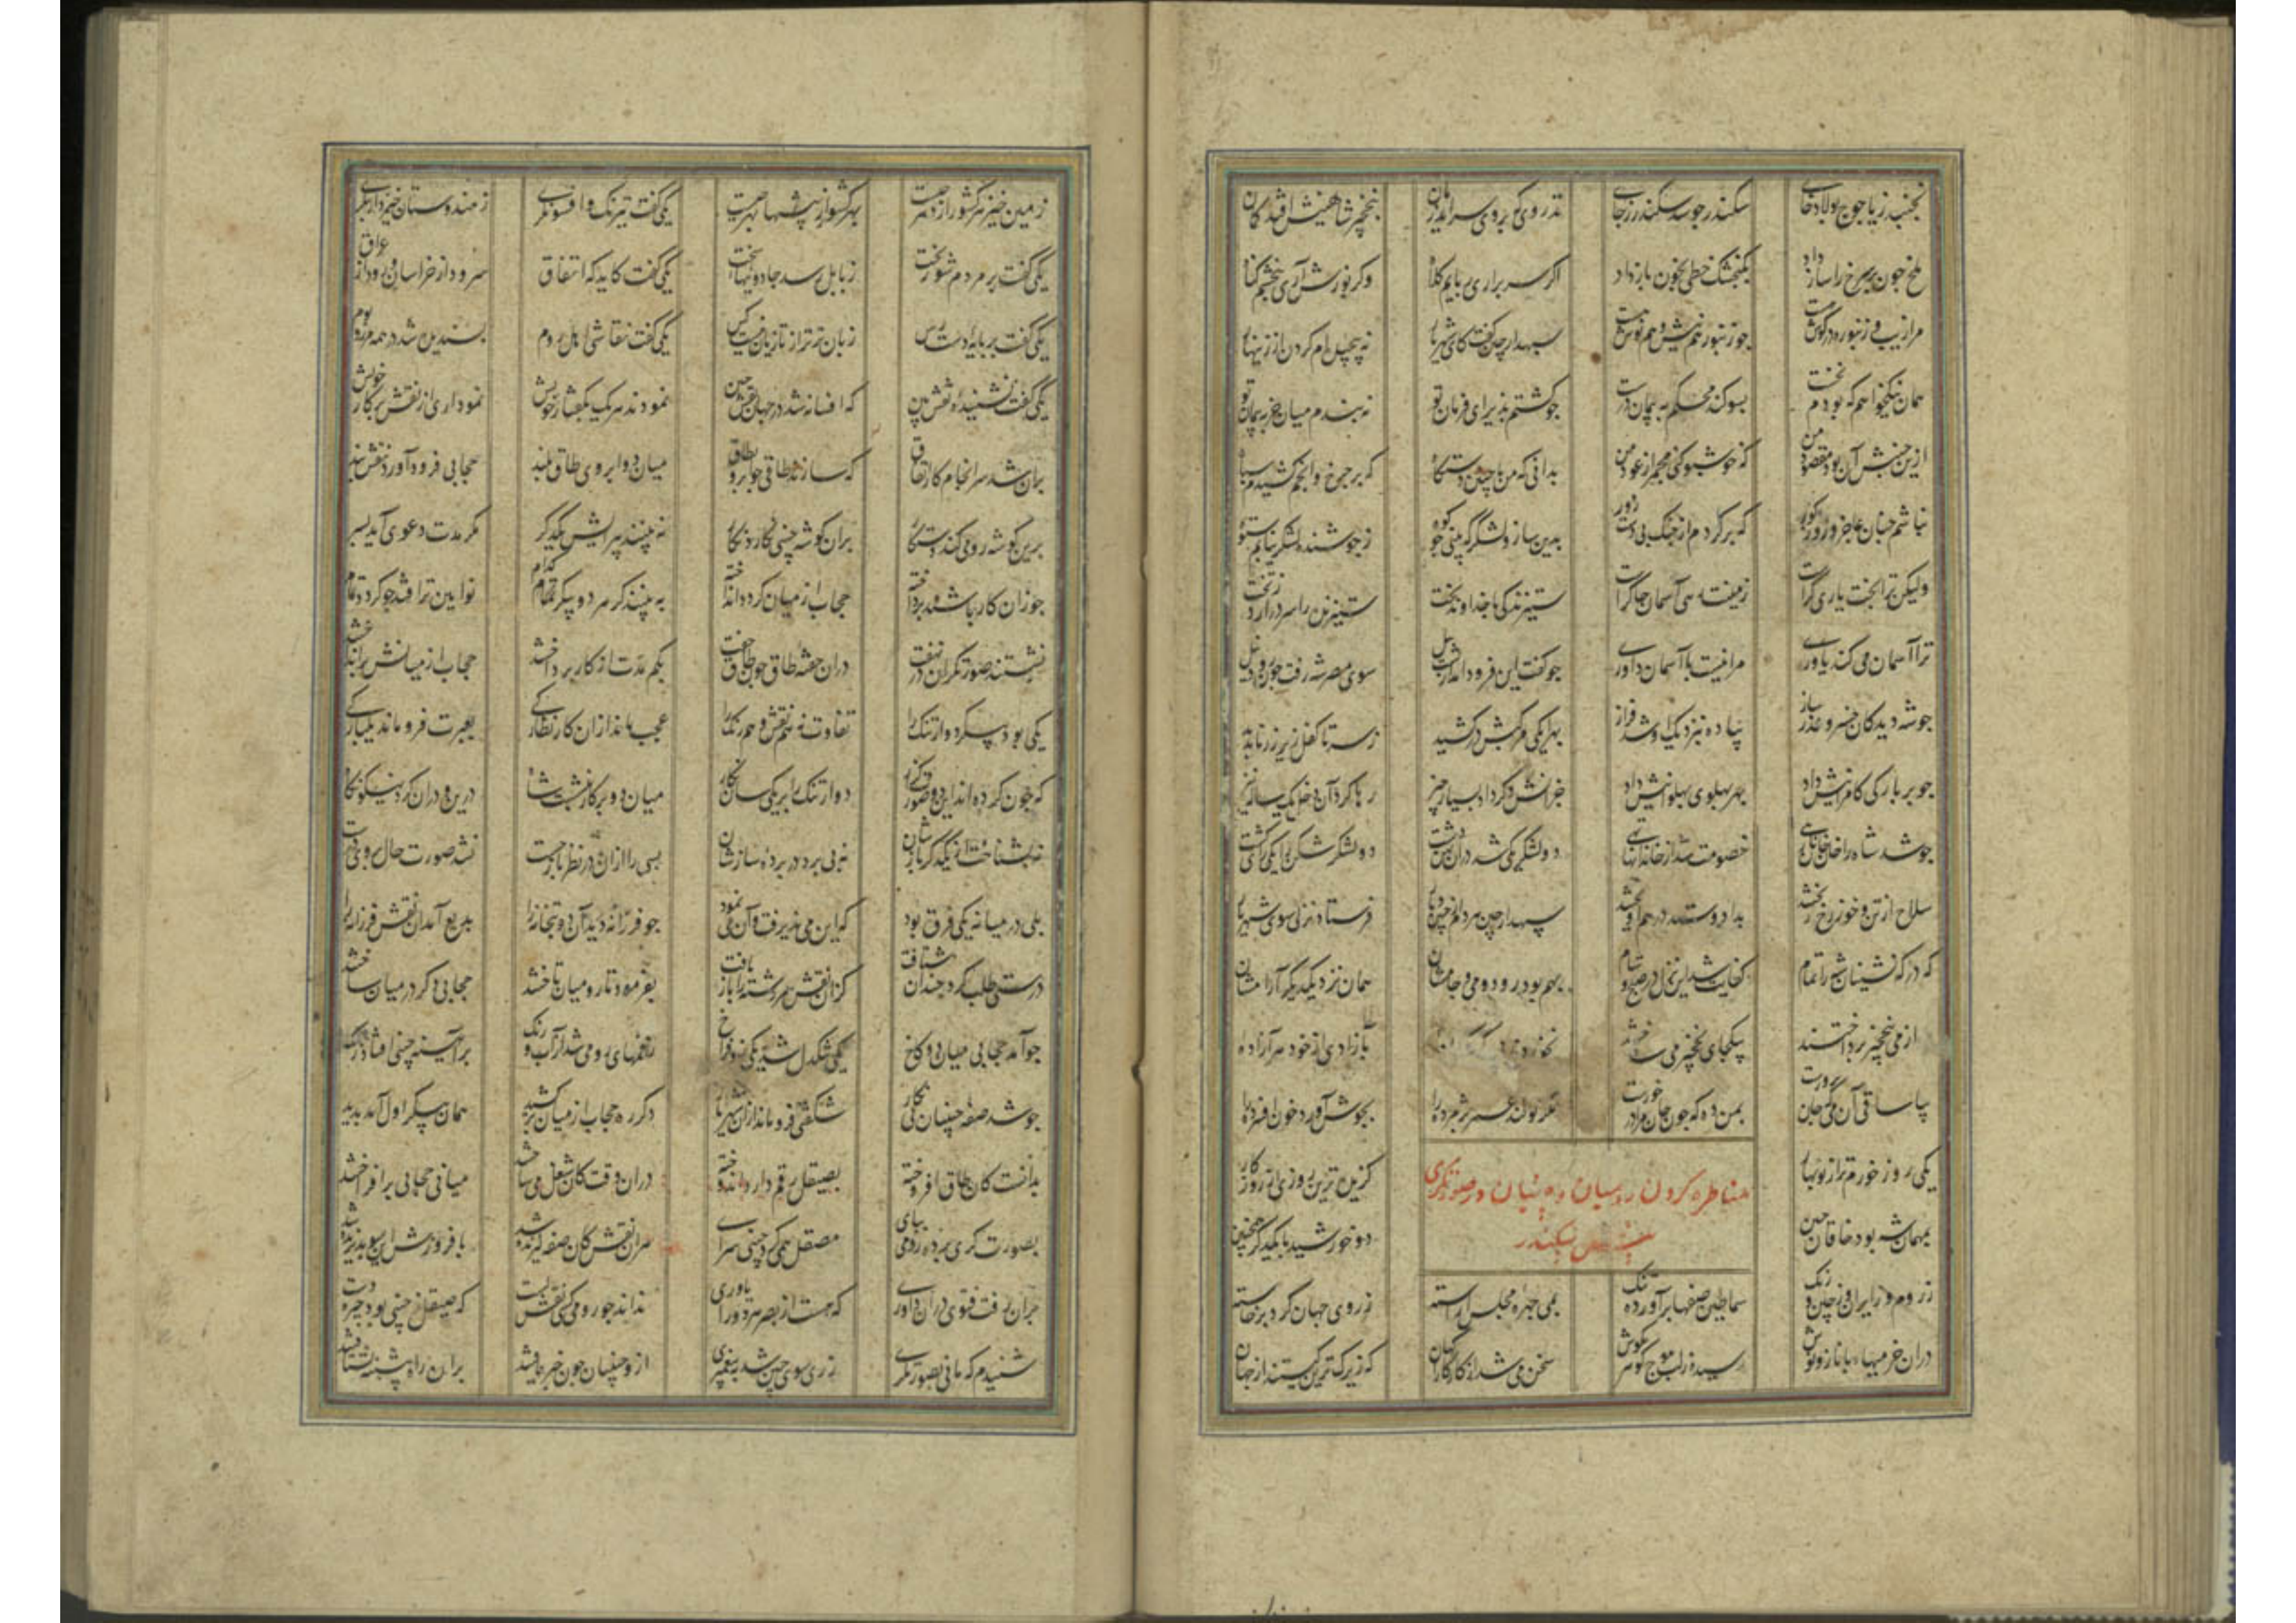 نجنبد ز یاجوج پولادخای سکندر چو سد سکندر ز جای تذروی که بر وی سرآید زمان بنخچیر شاهینش افتد گمان
ملخ چون پر سرخ را ساز داد بگنجشک خطی بخون باز داد اگر سر براری ربایم کلاه وگر پوزش آری ببخشم گناه
مرا زیت و زنبوره در گوش هست چو زنبور هم نیش و هم نوش هست سپهدار چین گفت کای شهریار نه پیچیده‌ام گردن از زینهار
همان نیکخواهم که بودم نخست بسوگند محکم به پیمان درست چو گشتم پذیرای فرمان تو نه بندم میان جز به پیمان تو
ازین جنبش آن بود مقصود من که خوشبو کنی مجمر از عود من بدانی که من با چنین دستگاه که بر چرخ و انجم کشیدم سپاه
نباشم چنان عاجز و زور کور که برگردم از جنگ بی دست زور بدین ساز و لشگر که بینی چو کوه ز جوشنده لشگر نیایم ستوه
ولیکن ترا بخت یاری گرست زمینت رهی آسمان چاکرست ستیزندگی با خداوند بخت ستیزنده را سر درارد ز تخت
ترا آسمان می کند یاوری مرا نیست با آسمان داوری چو گفت این فرود آمد از پشت پیل سوی مصر شه رفت چون رود نیل
چو شه دید کان خسرو عذر ساز پیاده بنزدیک او شد فراز بهرا یکی مرکبش درکشید ز سر تا کفل زیر زر ناپدید
چو بر بارگی کامرانیش داد بهر پهلوی پهلوانیش داد جز آنش دگر داد بسیار چیز رها کرد آن دخل یک ساله نیز
چو شد شاه را خان خانان رهی خصومت شد از خاندانها تهی دو لشکر یکی شد دران پهن دشت دو لشکر شکن را یکی گشت گشت
سلاح از تن و خوی ز رخ ریختند بداد و ستد درهم آویختند سپهدار چین هر دم از چین دیار فرستاد نزلی سوی شهریار
که درگه نشینان شه را تمام کفایت شد این نزل در صبح و شام بهم بود رود و می و جامشان همان نزد یکدیگر آرامشان
از می بنخچیر پرداختند بیکجای نخچیر می ساختند نخوردند بآزادی از خود سر آزاده
بیا ساقی آن می که جان پرورست بمن ده که چون جان مرا درخورست مگر نو کند عمر پژمرده را بجوش آورد خون افسرده را
یکی روز خرم تر از نوبهار گزین ترین روزی از روزگار
مناظره کردن رومیان و چینیان در صورتگری
پیش سکندر
بمهمان شه بود خاقان چین دو خورشید با یکدگر همنشین
ز روم و ز ایران و ز چین و زنگ سماطین صفها برآورده تنگ بمی چهره مجلس آراسته ز روی جهان گرد برخاسته
دران خرمیهاء با ناز و نوش رسیده ز لب موج گوهر بگوش سخن می شد از کار کارآگهان که زیرک ترین کیستند از جهان
زمین خیز هر کشور از دهر چیست بهر کشور از پیشها بهر چیست یکی گفت نیرنگ و افسونگری ز هندوستان خیزد ار بنگری
یکی گفت بر مردم شوربخت ز بابل رسد جادوییهاء سخت یکی گفت کاید گه اتفاق سرود از خراسان و رود از عراق
یکی گفت بر پایه دست رس زبان تر تر از تازیان نیست کس یکی گفت نقاشی اهل روم پسندیده شد در همه مرز و بوم
یکی گفت نشنیده نقش بین که افسانه شد در جهان نقش چین نمودند هر یک بگفتار خویش نموداری از نقش پرگار خویش
بران شد سرانجام کار اتفاق که سازند طاقی چو ابرو بطاق میان دو ابروی طاق بلند حجابی فرود آورد نقش بند
برین گوشه رومی کند دستکار بران گوشه چینی نگارد نگار نه بینند پیرایش یکدگر مگر مدت دعوی آید بسر
چو زان کار باشند پرداخته حجاب از میان گردد انداخته به بینند کز هر دو پیکر کدام نو آیین تر افتد چو گردد تمام
نشستند صورتگران در نهفت دران جفته طاق چون طاق جفت بکم مدت از کار پرداختند حجاب از میانش برانداختند
یکی بود پیکر دو ارتنگ را تفاوت نه هم نقش و هم رنگ را عجب ماند ازان کار نظارگی بعبرت فرو ماند یکبارگی
که چون کرده اند این دو صورت نگار دو ارتنگ را بر یکی سان نگار میان دو پرگار بنشست شاه درین و دران کرد نیکو نگاه
نه بشناخت از یکدگر بازشان نه پی برد در پرده سازشان بسی راز ازان در نظر باز جست نشد صورت حال بر وی درست
بلی در میانه یکی فرق بود که این می پذیرفت و آن می نمود چو فرزانه دید آن دو بتخانه را بدیع آمد آن نقش فرزانه را
درستی طلب کرد چندان شتافت کزان نقش سررشته را باز یافت بفرمود تا در میان تاختند حجابی دگر در میان ساختند
چو آمد حجابی میان دو کاخ یکی تنگدل شد یکی رو فراخ رقمهای رومی نشد زآب و رنگ بر آیینه چینی افتاد زنگ
چو شد صفه چینیان بی نگار شگفتی فرو ماند ازان شهریار دگر ره حجاب از میان برکشید همان پیکر اول آمد پدید
بدانست کان طاق افروخته بصیقل رقم دارد اندوخته دران وقت کان شغل می ساختند میانی حجابی برافراختند
بصورت گری بود رومی بپای مصقل همی کرد چینی سرای هران نقش کان صفه گیرنده شد بافروزش این سو پذیرنده شد
بران رفت فتوی دران داوری که هست از بصر هر دو را یاوری نداند چو رومی کسی نقش بست که صیقل ز چینی بود چیره دست
شنیدم که مانی بصورتگری ز ری سوی چین شد به پیغمبری ازو چینیان چون خبر یافتند بران راه پیشینه بشتافتند